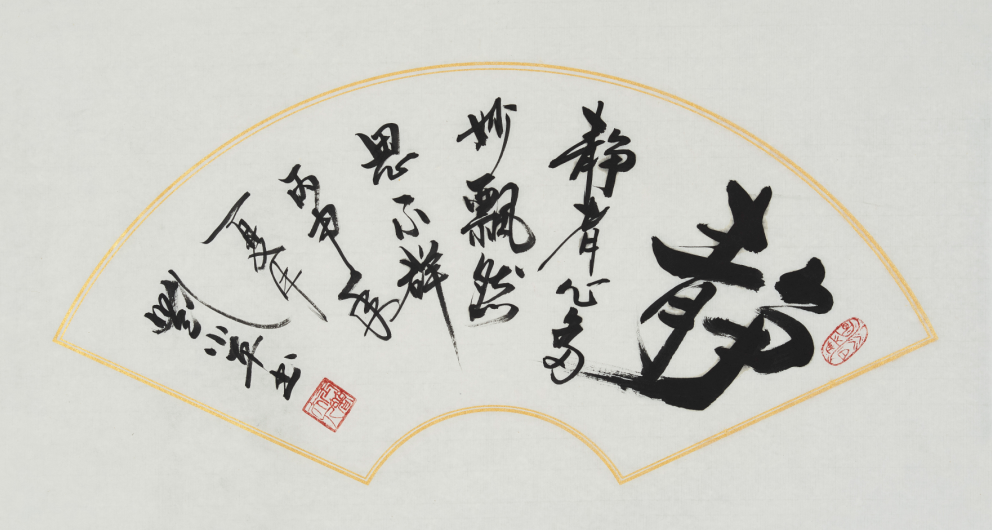 静
静者心多
妙飄然
思不群
丙申年
夏
书